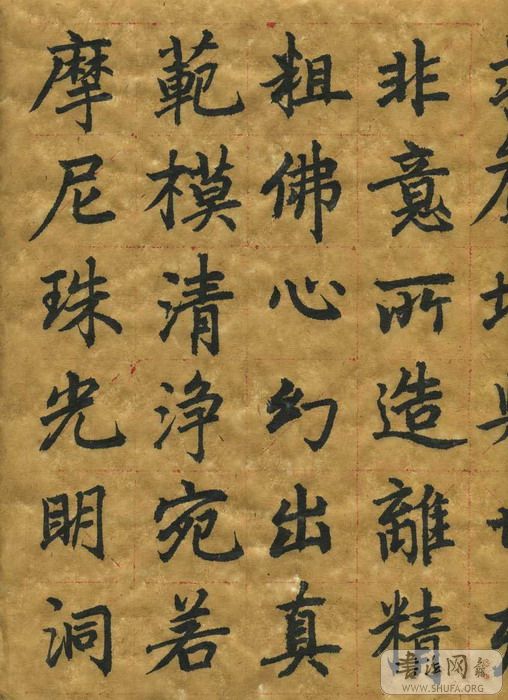 非意所造離精
粗佛心幻出真
範模清净宛若
摩尼珠光明洞
书法网
WWW.SHUFA.ORG